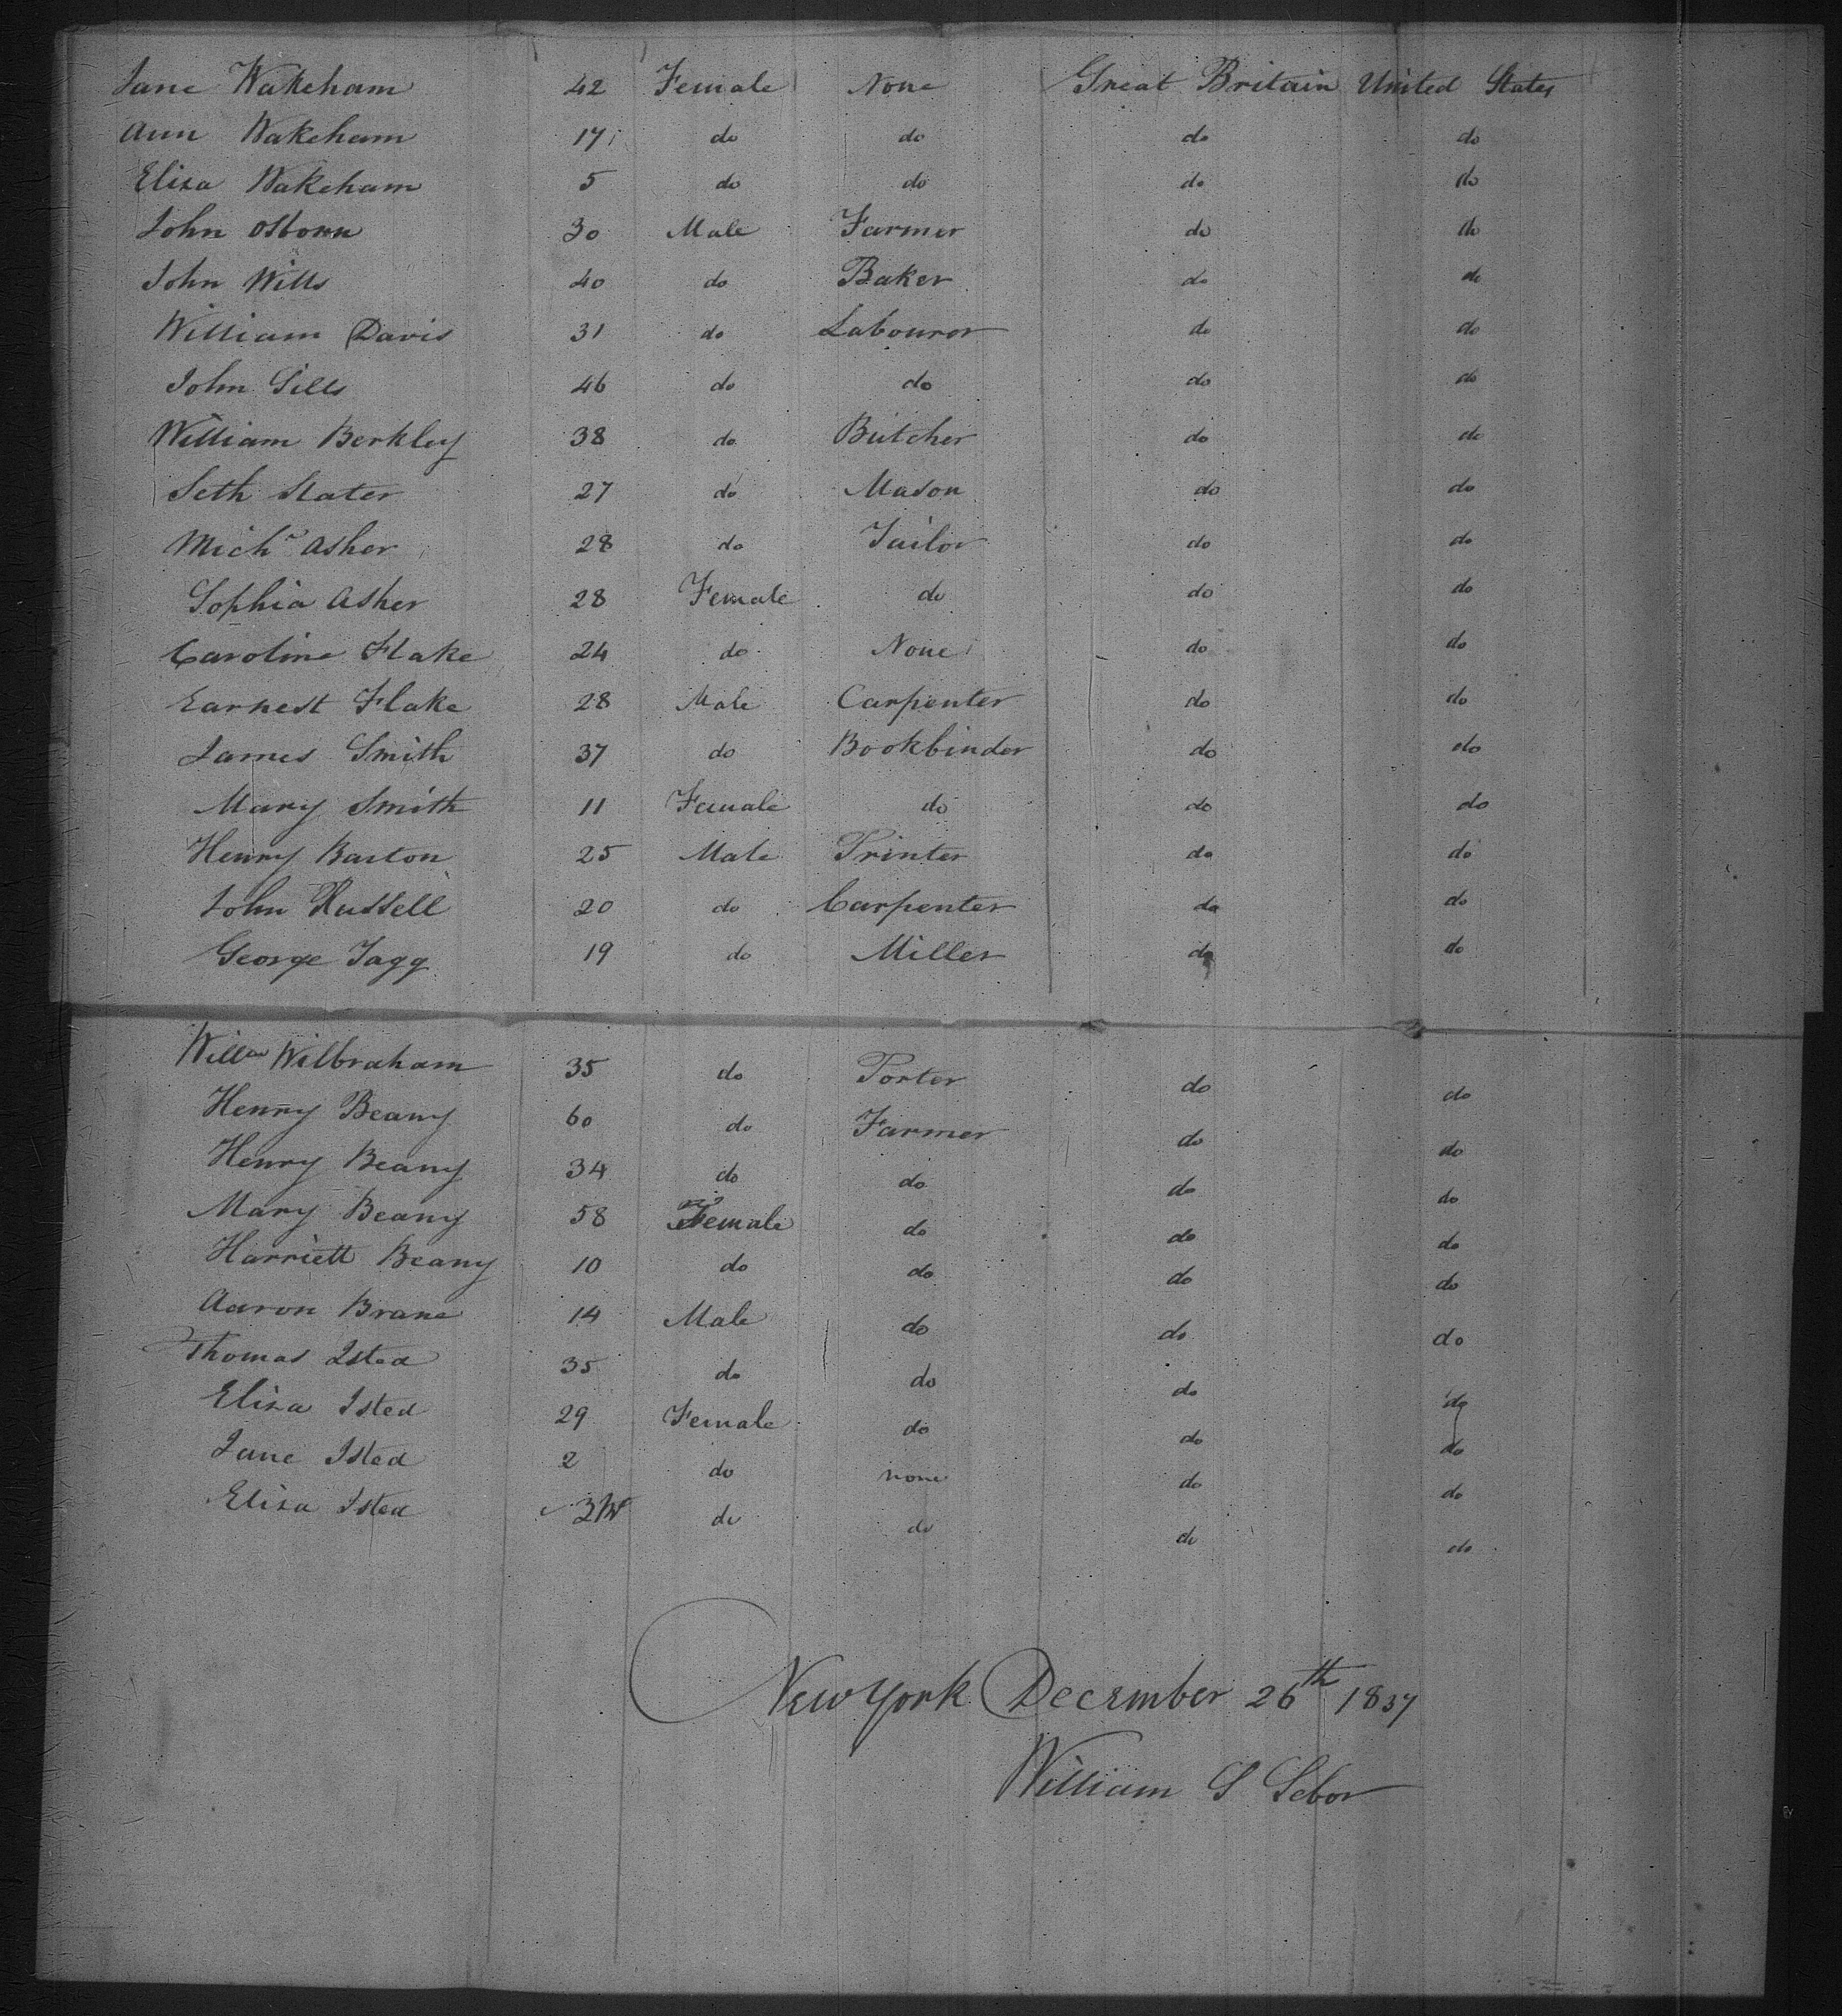 Jane Wakeham 42 Female None Great Britain United States
Ann Wakeham 17 do do do do
Eliza Wakeham 5 do do do do
John Osborn 30 Male Farmer do do
John Wills 40 do Baker do do
William Davis 31 do Labourer do do
John Sills 46 do do do do
William Berkley 38 do Butcher do do
Seth Slater 27 do Mason do do
Michl Asher 28 do Tailor do do
Sophia Asher 28 Female do do do
Caroline Flake 24 do None do do
Earnest Flake 28 Male Carpenter do do
James Smith 37 do Bookbinder do do
Mary Smith 11 Female do do do
Henry Barton 25 Male Printer do do
John Russell 20 do Carpenter do do
George Tagg 19 do Miller do do
Willm Wilbraham 35 do Porter do do
Henry Beany 60 do Farmer do do
Henry Beany 34 do do do do
Mary Beany 58 Female do do do
Harriett Beany 10 do do do do
Aaron Brane 14 Male do do do
Thomas Isted 35 do do do do
Eliza Isted 29 Female do do do
Jane Isted 2 do none do do
Eliza Isted do do do do
New York December 26th 1837
William S Sebor